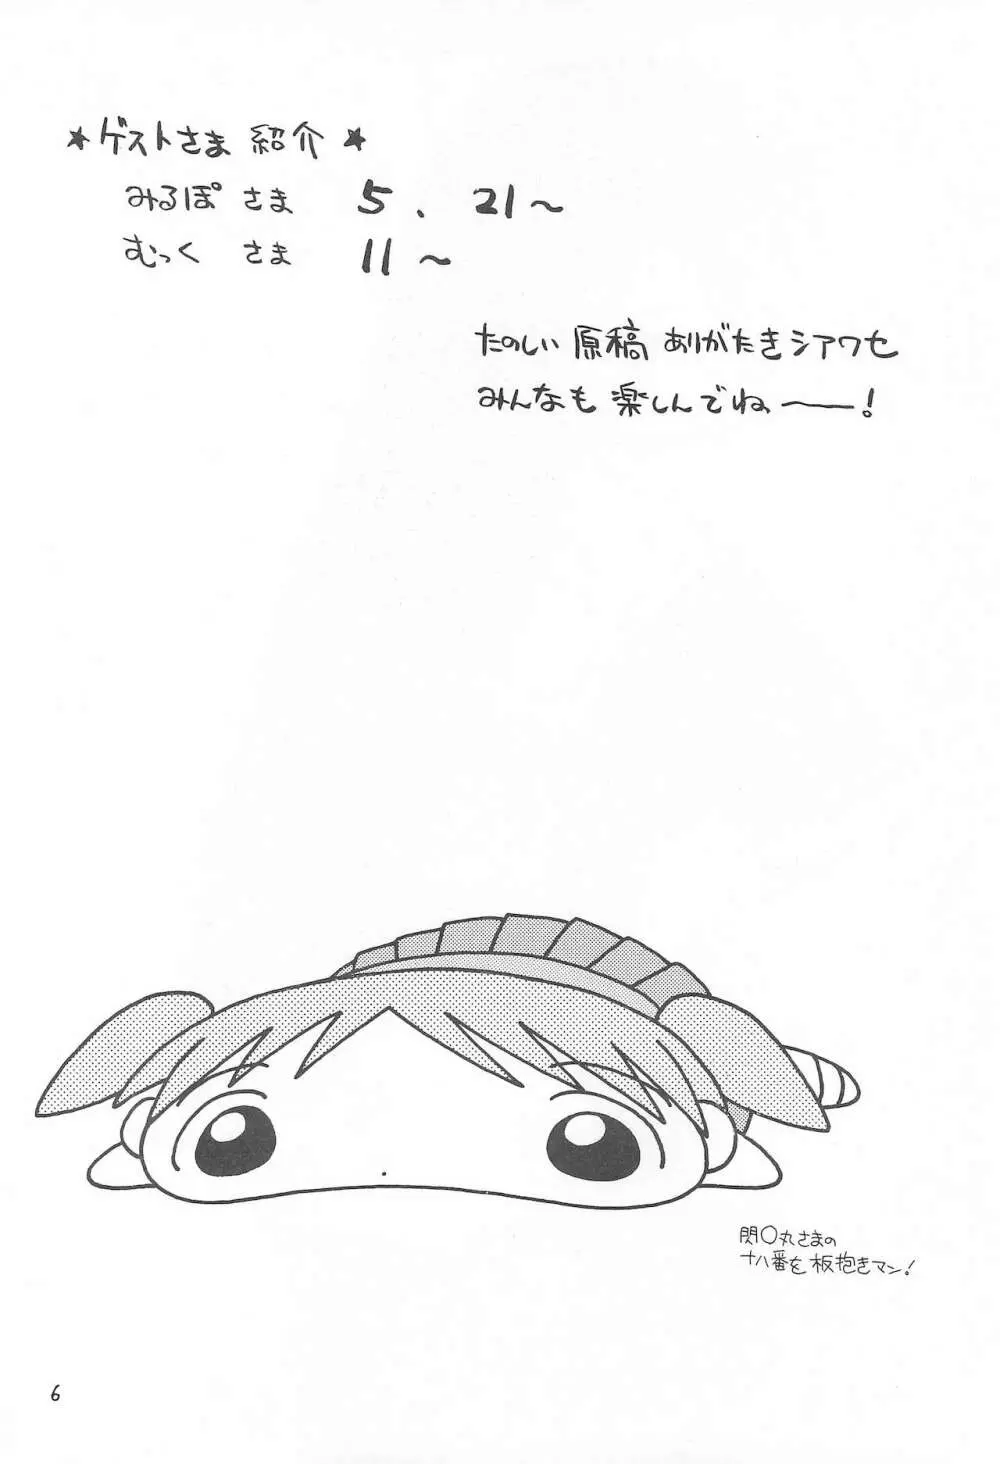 ★ゲストさま 紹介★
みるぽ さま 5、21〜
むっく さま 11〜
たのしい 原稿 ありがたきシアワセ
みんなも 楽しんでね〜――!
閃〇丸さまの
十八番を 板抱きマン!
6